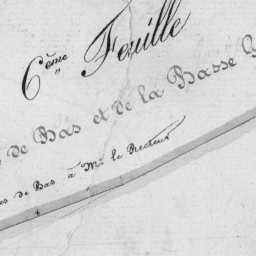 6ème Feuille
de Bas et de la Basse
de Bas à Mr le Recteur